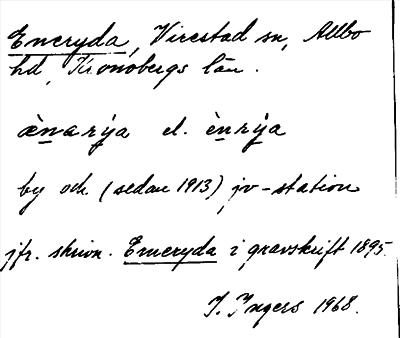 Eneryda, Virestad sn, Allbo
hd, Kronobergs län.
ènarýa el. ènrýa
by och (sedan 1913) jv-station
jfr. skrivn. Emeryda i gravskrift 1895.
I. Ingers 1968.